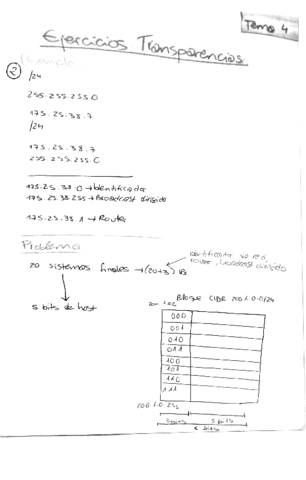 Tema 4
Ejercicios Transparencias
Ejemplo
2
/24
255.255.255.0
175.25.38.7
/24
175.25.38.7
255.255.255.0
175.25.38.0 → Identificador
175.25.38.255 → Broadcast dirigido
175.25.38.1 → Router
Problema
identificador de red,
router, broadcast dirigido
20 sistemas finales → (20+3)
5 bits de host
Bloque CIDR 200.1.0.0/24
000
001
010
011
100
101
110
111
200.1.0.255
3 bits
5 bits
8 bits